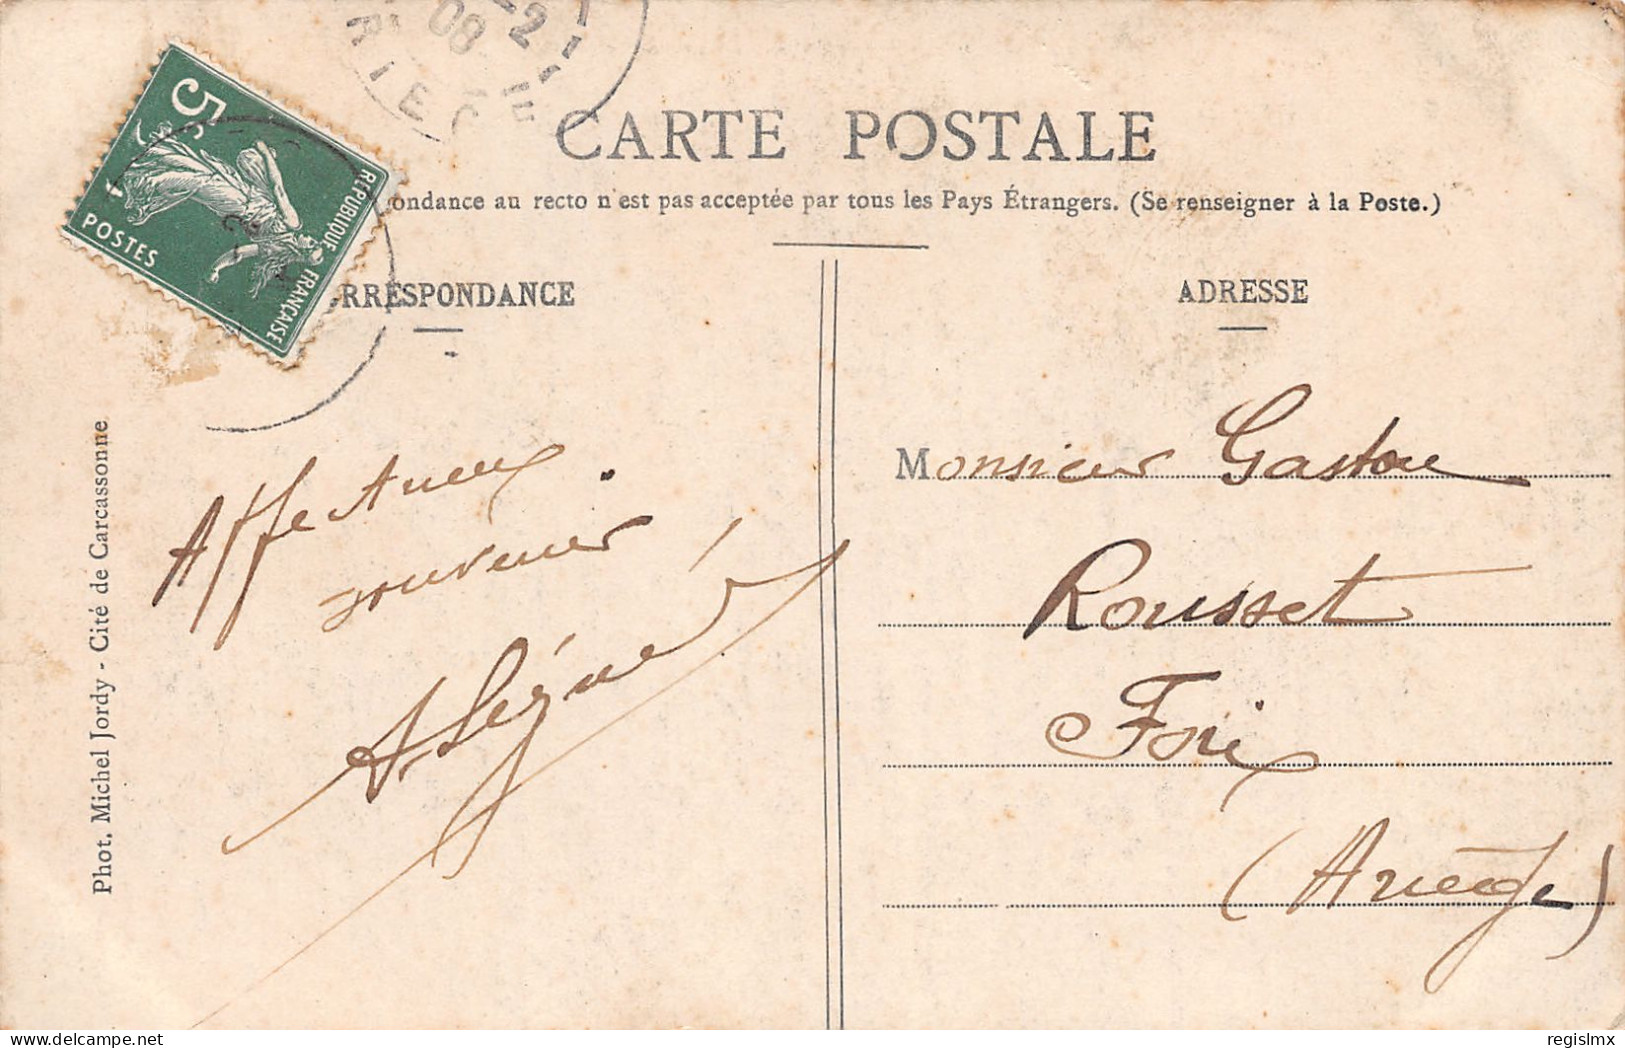 CARTE POSTALE
ondance au recto n'est pas acceptée par tous les Pays Étrangers. (Se renseigner à la Poste.)
5c
POSTES
REPUBLIQUE FRANÇAISE
08
-2
RIEG
RRESPONDANCE
Affectueux
souvenir
ADRESSE
Monsieur Gaston
Rousset
Foix
(Ariège)
Phot. Michel Jordy - Cité de Carcassonne
regislmx